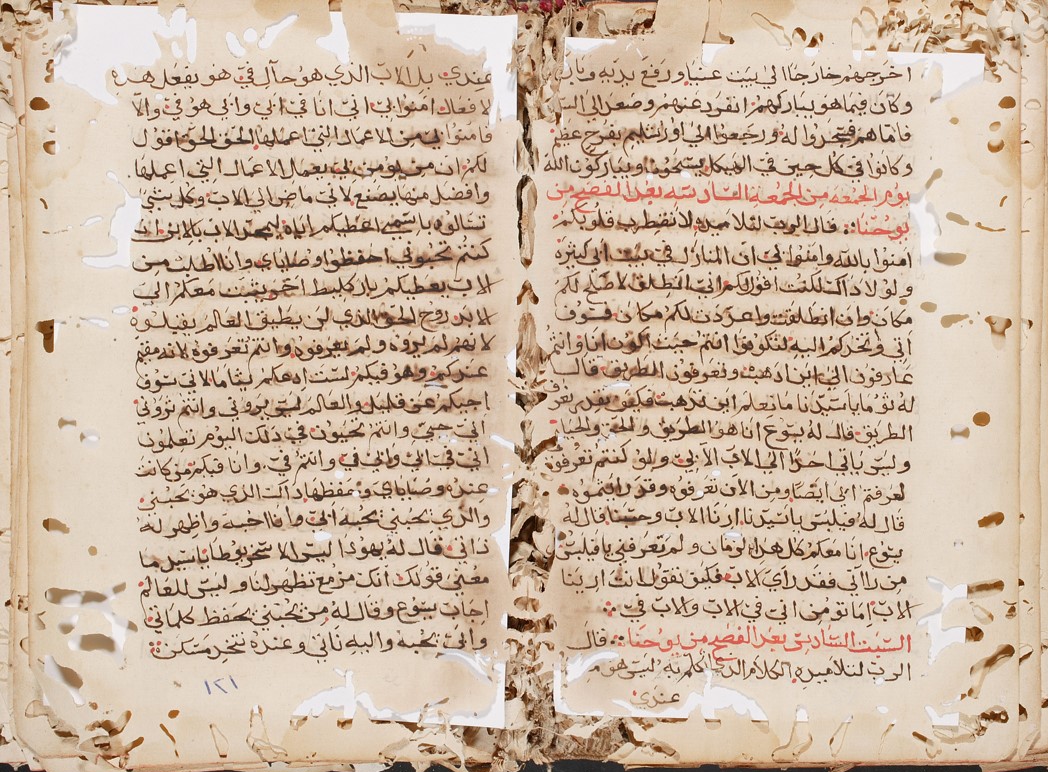 اخرجهم خارجا الي بيت عنيا ورفع يديه وبارك
وكان فيما هو يباركهم انفرد عنهم وصعد الي السما
فاما هم فسجدوا له ورجعوا الي اورشليم بفرح عظيم
وكانوا في كل حين في الهيكل يسبحون ويباركون الله
يوم الجمعه من الجمعة السادسه بعد الفصح من
يوحنا ؞ قال الرب لتلاميده لا تضطرب قلوبكم
امنوا بالله وامنوا بي ان المنازل في بيت ابي كثيرة
ولولا داك لكنت اقول لكم اني انطلق لاصلح لكم
مكان وان انطلقت واعددت لكم مكان فسوف
اتي وخدكم اليه لتكونوا انتم حيث اكون انا وانتم
عارفون الي اين ادهب وتعرفون الطريق قال
له توما يا سيدنا ما نعلم اين تدهب فكيف نقدر نعرف
الطريق قال له يسوع انا هو الطريق والحق والحياه
وليس ياتي احدا الي الاب الا بي ولو كنتم تعرفوني
لعرفتم ابي ايضا ومن الان تعرفوه وقد رايتموه
قال له فيلبس يا سيدنا ارنا الاب وحسبنا قال له
يسوع انا معكم كل هدا الزمان ولم تعرفني يا فيلبس
من راني فقد راي الاب فكيف تقول انت ارينا
الاب اما تومن اني في الاب والاب في ؞
السبت السادس بعد الفصح من يوحنا ؞ قال
الرب لتلاميده الكلام الدي اكلم به ليس هو من
عندي
عندي بل الاب الدي هو حال في هو يفعل هده
الافعال امنوا بي اني انا في ابي وابي هو في والا
فامنوا بي من الاعمال التي اعملها الحق الحق اقول
لكم ان من يومن بي يعمل الاعمال التي اعملها
وافضل منها يصنع لاني ماض الي الاب وكل شي
تسالوه باسمي اعطيكم اياه ليمجد الاب بالابن ان
كنتم تحبوني احفظوا وصاياي وانا اطلب من
الاب يعطيكم باركليط اخر يثبت معكم الي
الابد روح الحق الدي لن يطيق العالم يقبلوه
لانهم لم يروه ولم يعرفوه وانتم تعرفوه لانه مقيم
عندكم وهو فيكم لست ادعكم يتاما لاني سوف
اجيكم عن قليل والعالم ليس يروني وانتم تروني
اني حي وانتم تحيون في دلك اليوم تعلمون
اني في ابي وابي في وانتم في وانا فيكم من كانت
عنده وصاياي وحفظها داك الدي هو يحبني
والدي يحبني يحبه ابي وانا احبه واظهر له
داتي قال له يهودا ليس الاسخريوطا يا سيد ما
معني قولك انك مزمع تظهر لنا وليس للعالم
اجاب يسوع وقال له من يحبني يحفظ كلماتي
وابي يحبه واليه ناتي وعنده نتخد مسكن ؞
١٢١